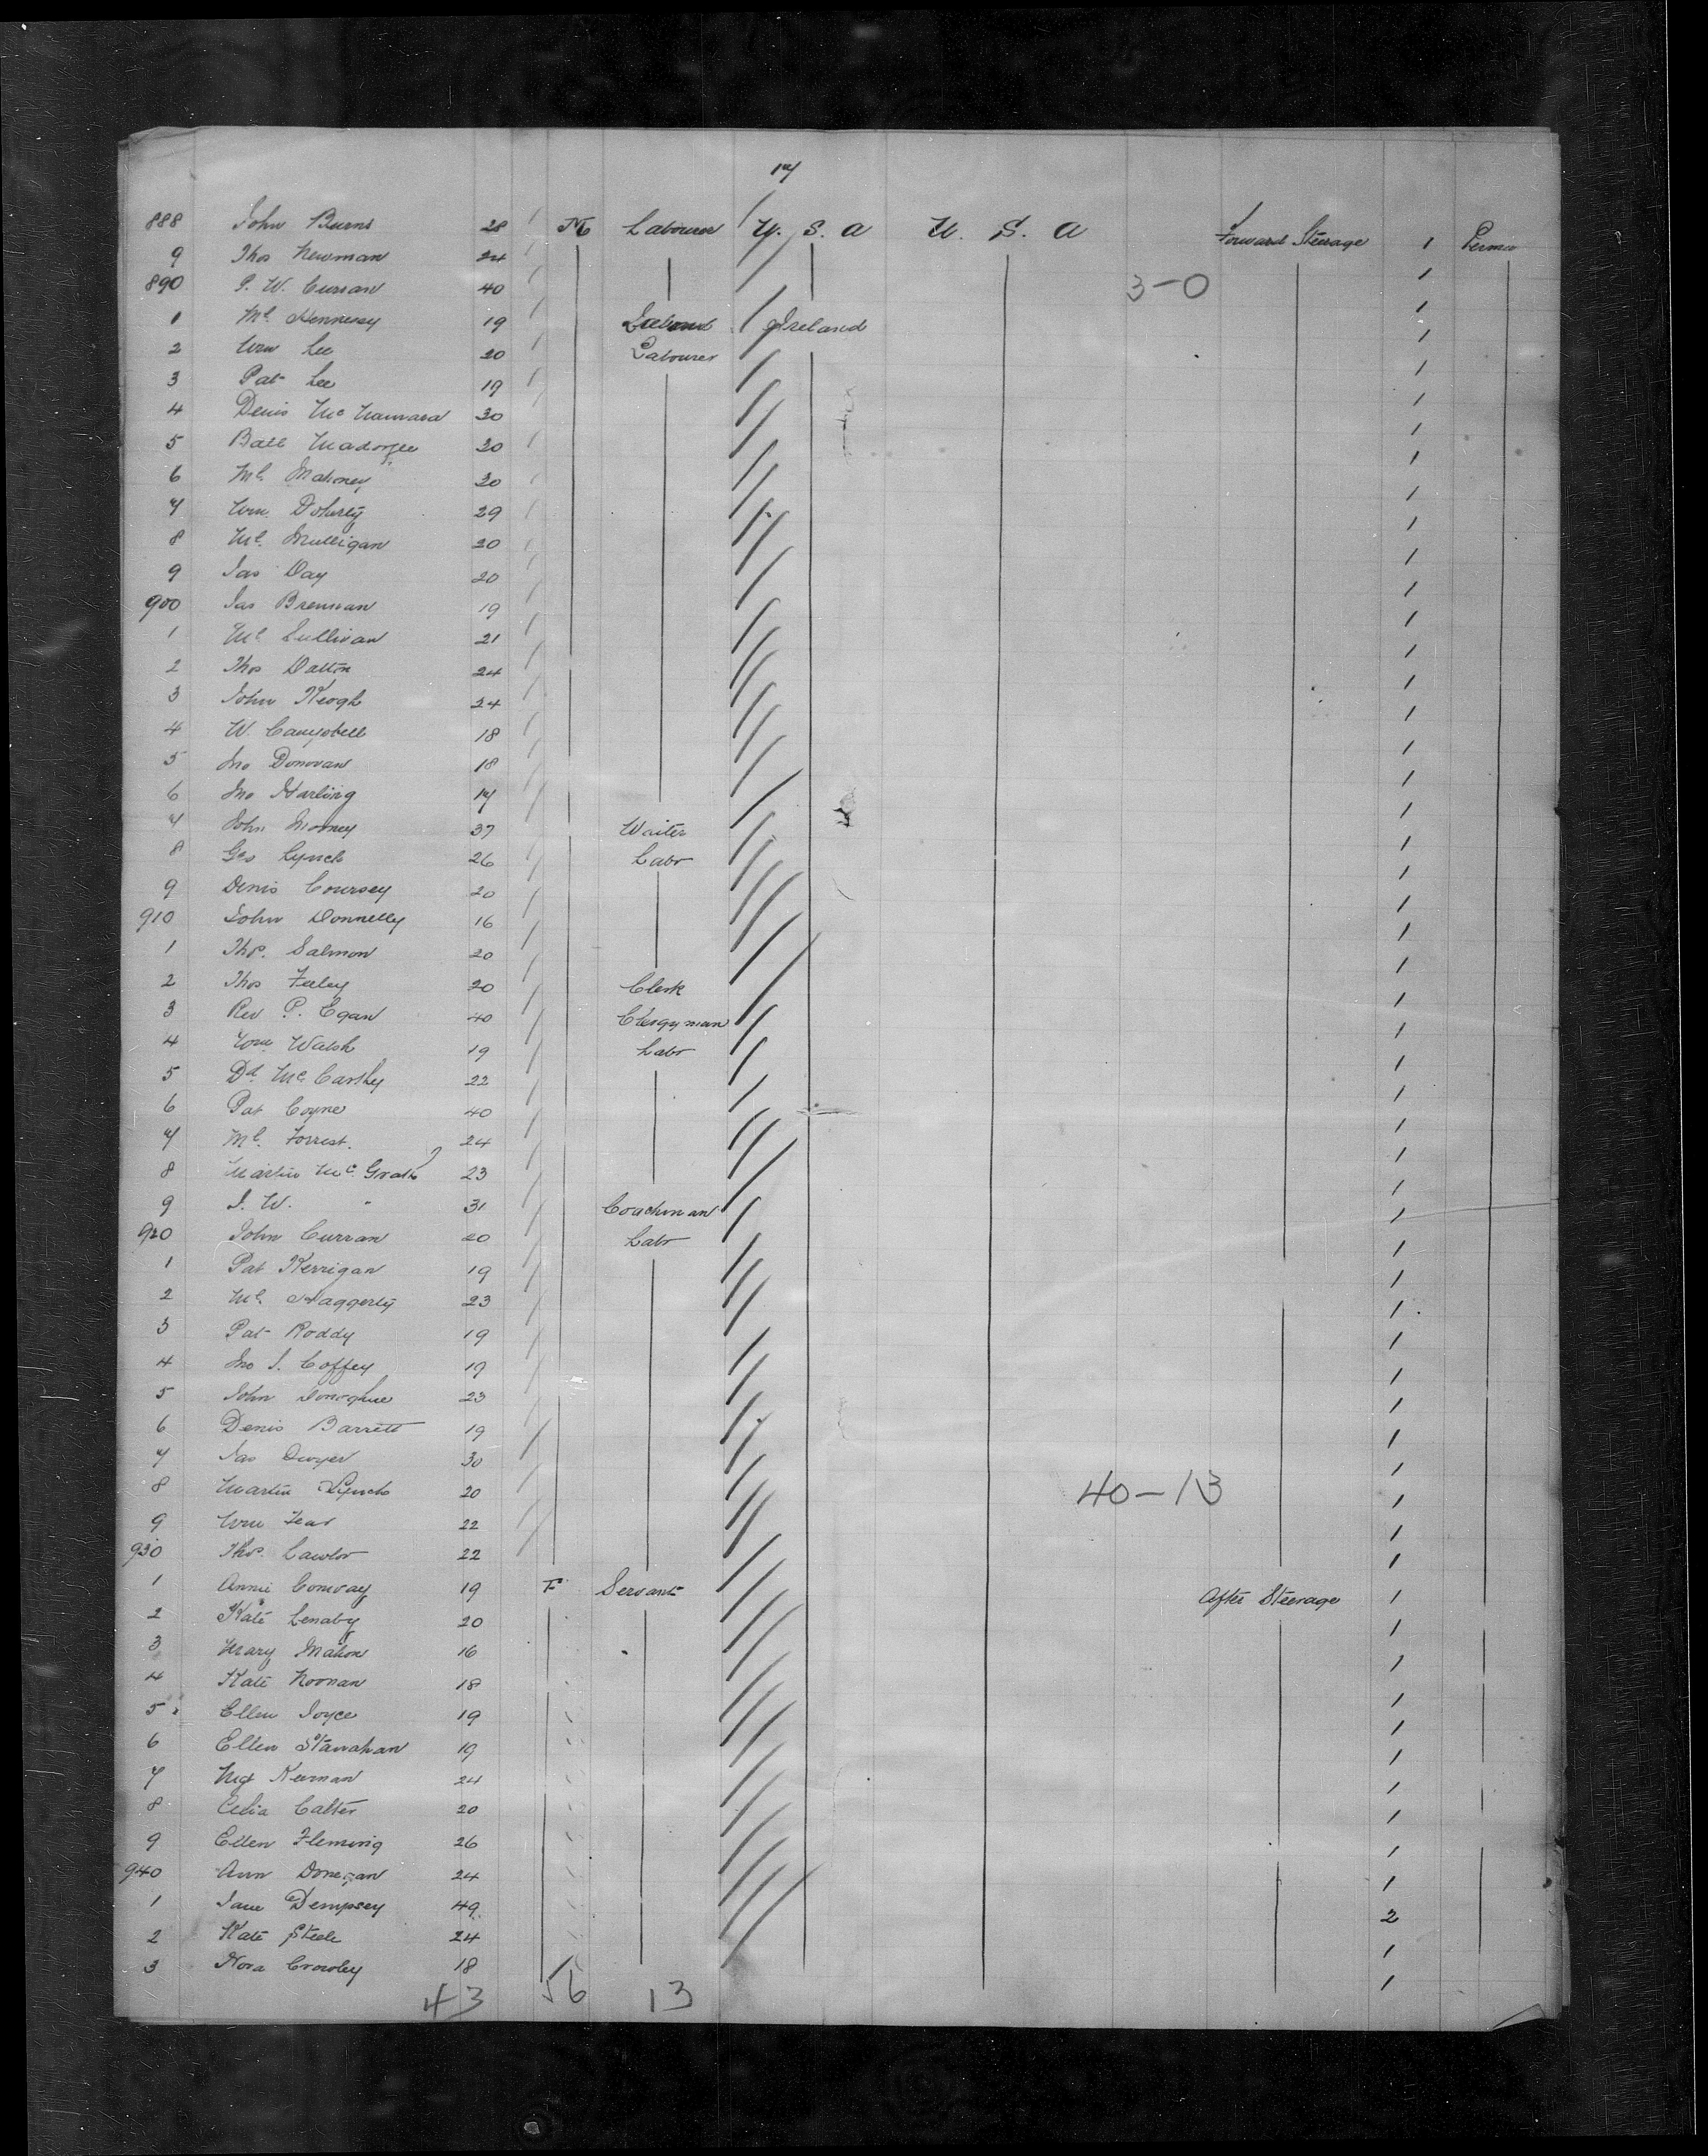 17
888 John Burns 28 / M Labourer / U. S. A U. S. A Forward Steerage 1 Perm
9 Thos Newman 24 / / 1
890 P. W. Curran 40 / / 3-0 1
1 Ml Hennesey 19 / / Ireland 1
2 Wm Lee 20 / Labourer / 1
3 Pat Lee 19 / / 1
4 Denis McNamara 30 / / 1
5 Batt 20 / / 1
6 Ml Mahoney 30 / / 1
7 Wm Doherty 29 / / 1
8 Ml. Mulligan 20 / / 1
9 Jas Day 20 / / 1
900 Jas Brennan 19 / / 1
1 Ml Sullivan 21 / / 1
2 Thos Dalton 24 / / 1
3 John Keogh 24 / / 1
4 W. Campbell 18 / / 1
5 Jno Donovan 18 / / 1
6 Jno Harling 17 / / 1
7 John Mooney 37 / Waiter / 1
8 Geo Lynch 26 / Labr / 1
9 Denis Coursey 20 / / 1
910 John Donnelly 16 / / 1
1 Thos. Salmon 20 / / 1
2 Thos Feeley 20 / Clerk / 1
3 Rev P. Egan 40 / Clergyman / 1
4 Wm Walsh 19 / Labr / 1
5 Dd McCarthy 22 / / 1
6 Pat Coyne 40 / / 1
7 Ml. Forrest. 24 / / 1
8 Martin McGrath 23 / / 1
9 J. W. " 31 / Coachman / 1
920 John Curran 20 / Labr / 1
1 Pat Kerrigan 19 / / 1
2 Ml. Haggerty 23 / / 1
3 Pat Roddy 19 / / 1
4 Jno J. Coffey 19 / / 1
5 John Donoghue 23 / / 1
6 Denis Barrett 19 / / 1
7 Jas Dwyer 30 / / 1
8 Martin Lynch 20 / / 40-13 1
9 Wm Fear 22 / / 1
930 Thos. Lawlor 22 / / 1
1 Annie Conway 19 F Servant / After Steerage 1
2 Kate Lenaby 20 / 1
3 Mary Mahon 16 / 1
4 Kate Noonan 18 / 1
5 Ellen Joyce 19 / 1
6 Ellen Stanahan 19 / 1
7 Mgt Kiernan 24 / 1
8 Celia Calter 20 / 1
9 Ellen Fleming 26 / 1
940 Ann Donegan 24 / 1
1 Jane Dempsey 49 / 2
2 Kate Steele 24 / 1
3 Nora Crowley 18 / 1
43 56 13